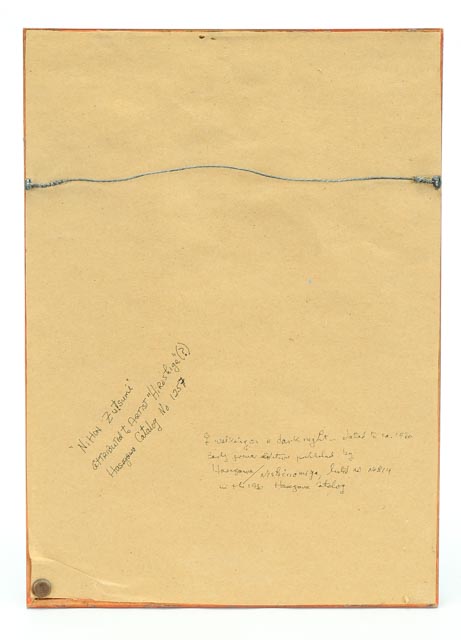 NiHON Zutsumi"
attributed to Artist "Hiroshige"(?)
Hasegawa Catalog No 1257
walking on a dark night - dated to ca.
Early prewar edition published by
Hasegawa/Nishinomiya, listed as
Hasegawa Catalog